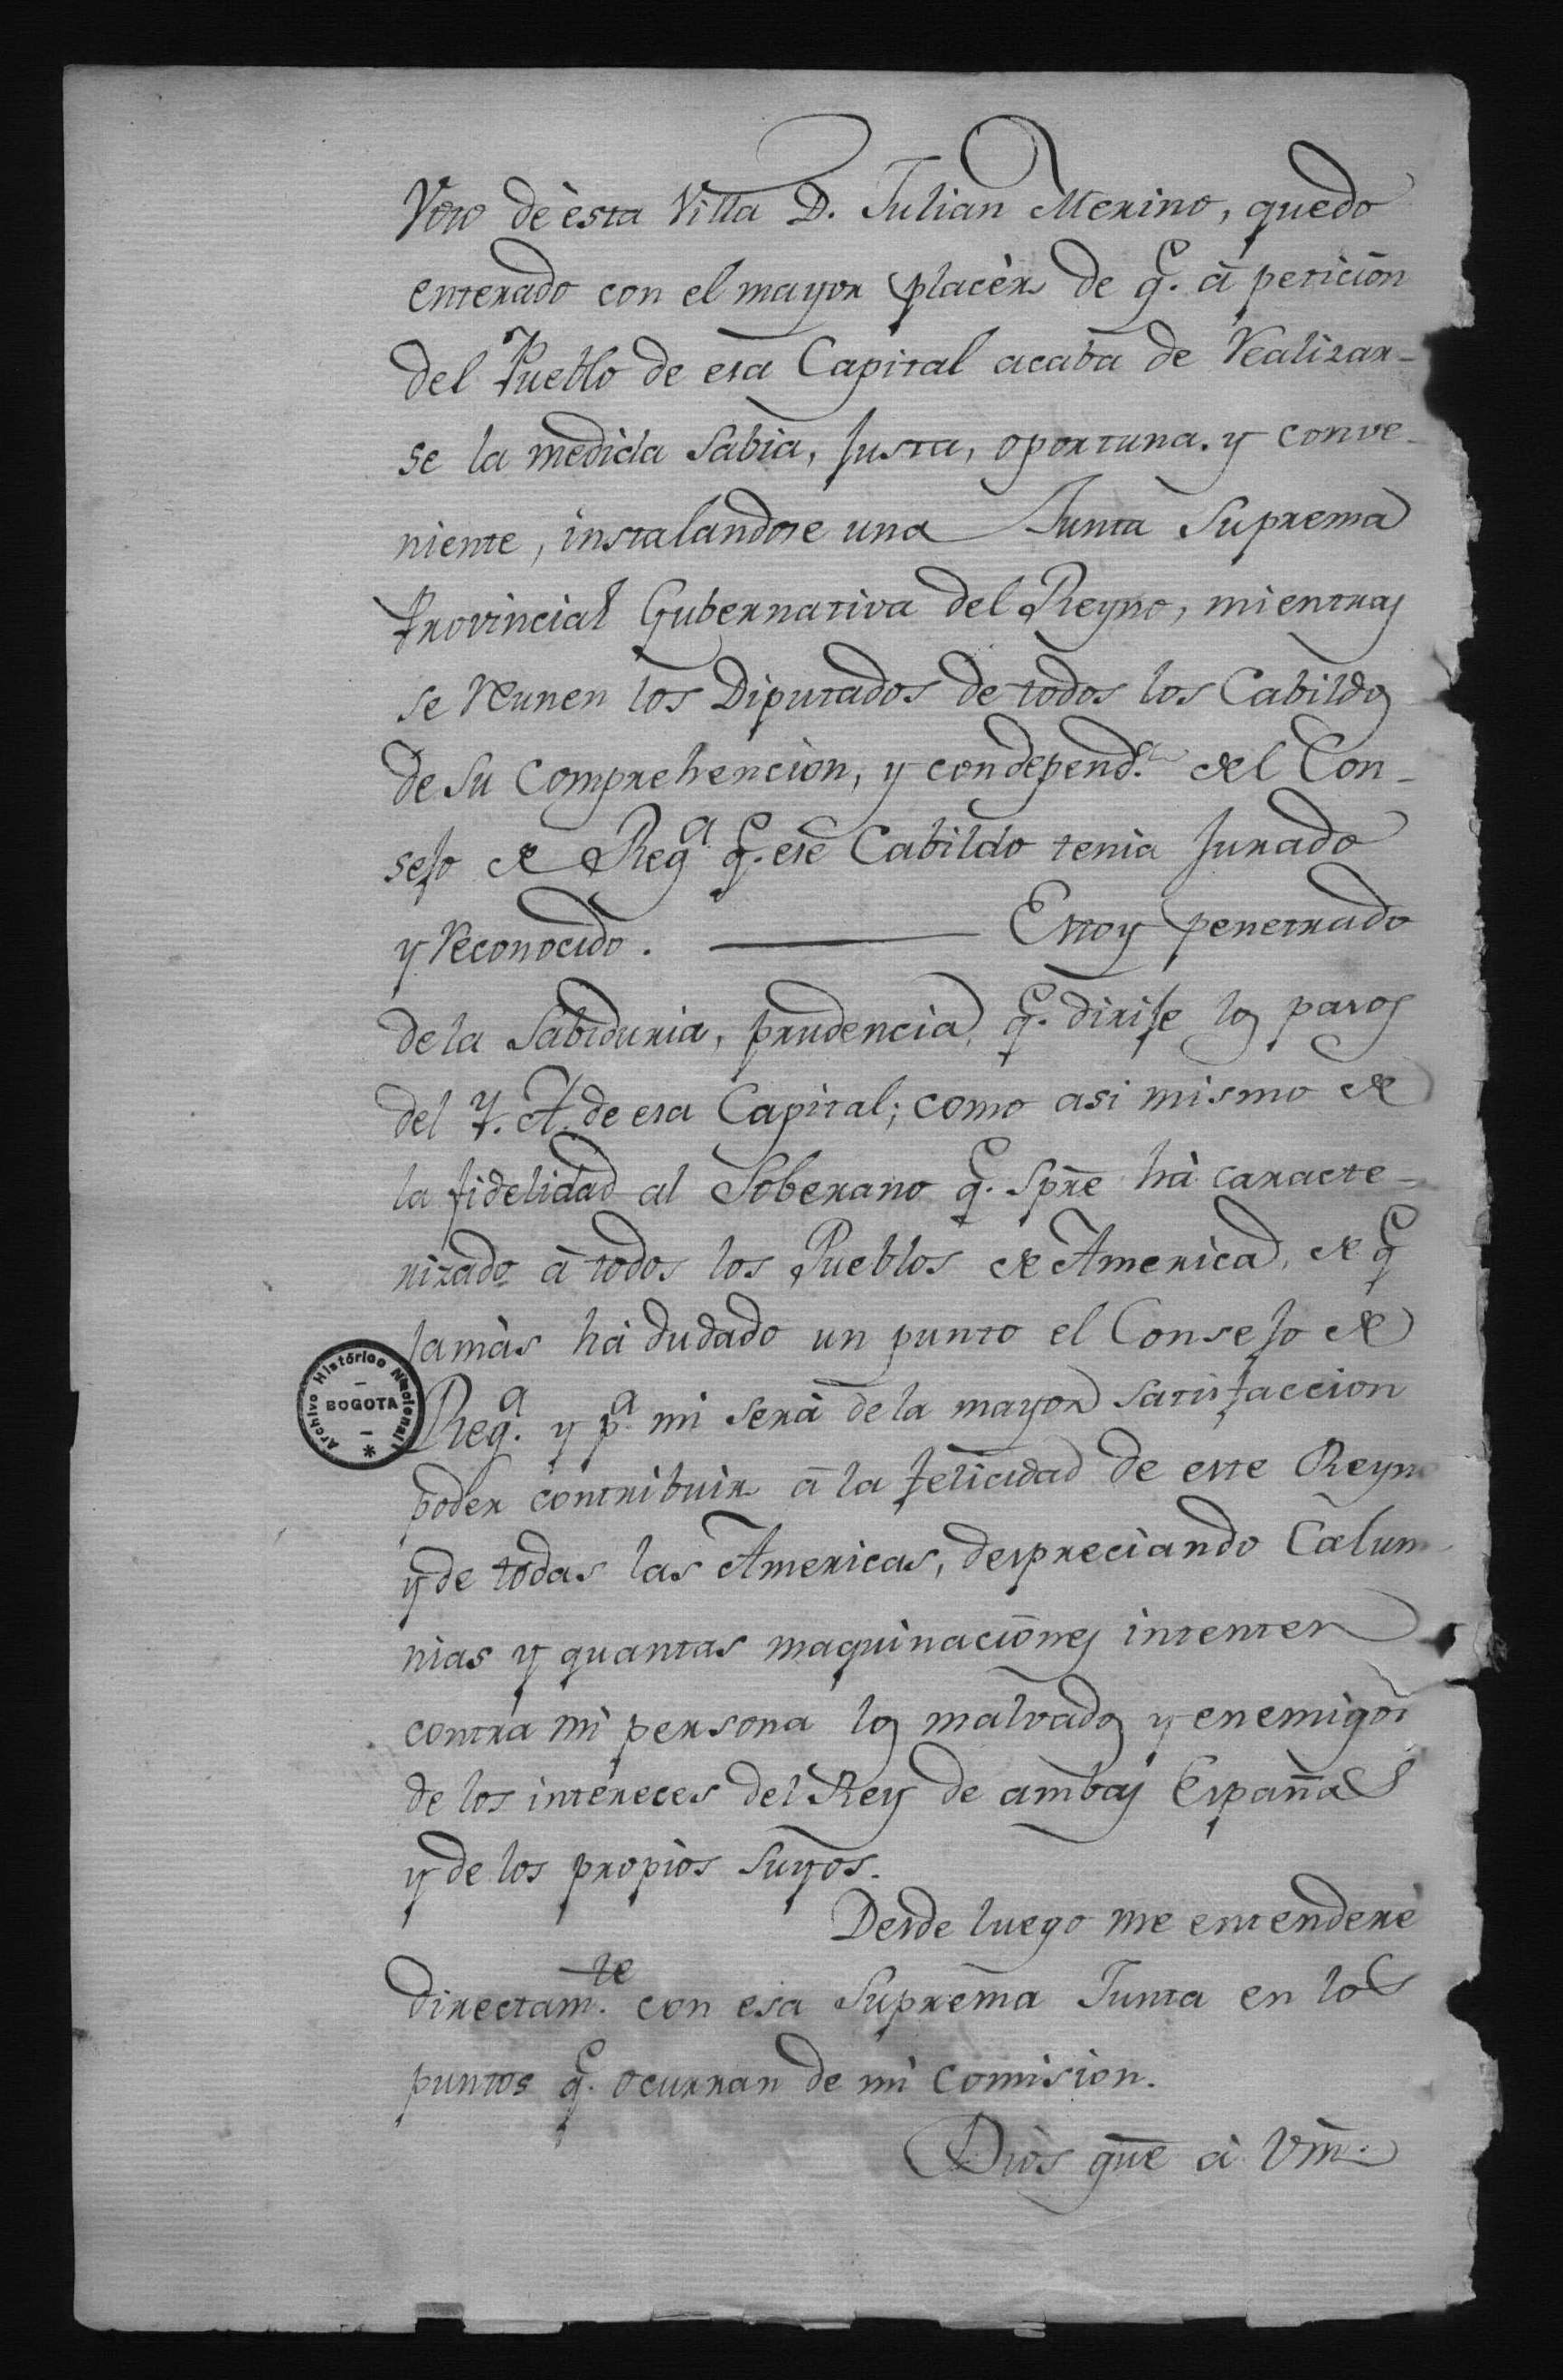 Voto de èsta Villa D. Julian Merino, quedo
enterado con el mayor placèr de q.e à peticion
del Pueblo de esa Capital acaba de Realizar-
se la medida Sabia, Justa, oportuna. y conve-
niente, instalandose una Junta Suprema
Provincial Gubernativa del Reyno, mientras
se Reunen los Diputados de todos los Cabildos
de su Comprehencion, y con depend.a del Con-
sejo de Reg.a q.e ese Cabildo tenia Jurado
y Reconocido. — Estoy penetrado
de la Sabiduria, prudencia, q.e dirije los pasos
del Y. A. de esa Capital; como asi mismo de
la fidelidad al Soberano q.e spre hà caracte-
rizado à todos los Pueblos de America, de q.e
Jamàs hà dudado un punto el Consejo de
Reg.a y p.a mi serà de la mayor satisfaccion
poder contribuir à la felicidad de este Reyno
y de todas las Americas, despreciando Calum-
nias y quantas maquinaciones intenten
contra mi persona los malvados y enemigos
de los intereces del Rey de ambas Españas
y de los propios Suyos.
Desde luego me entenderè
directam.te con esa Suprema Junta en los
puntos q.e ocurran de mi Comision.
Dios gue à Vm.
Archivo Histórico Nacional
BOGOTA